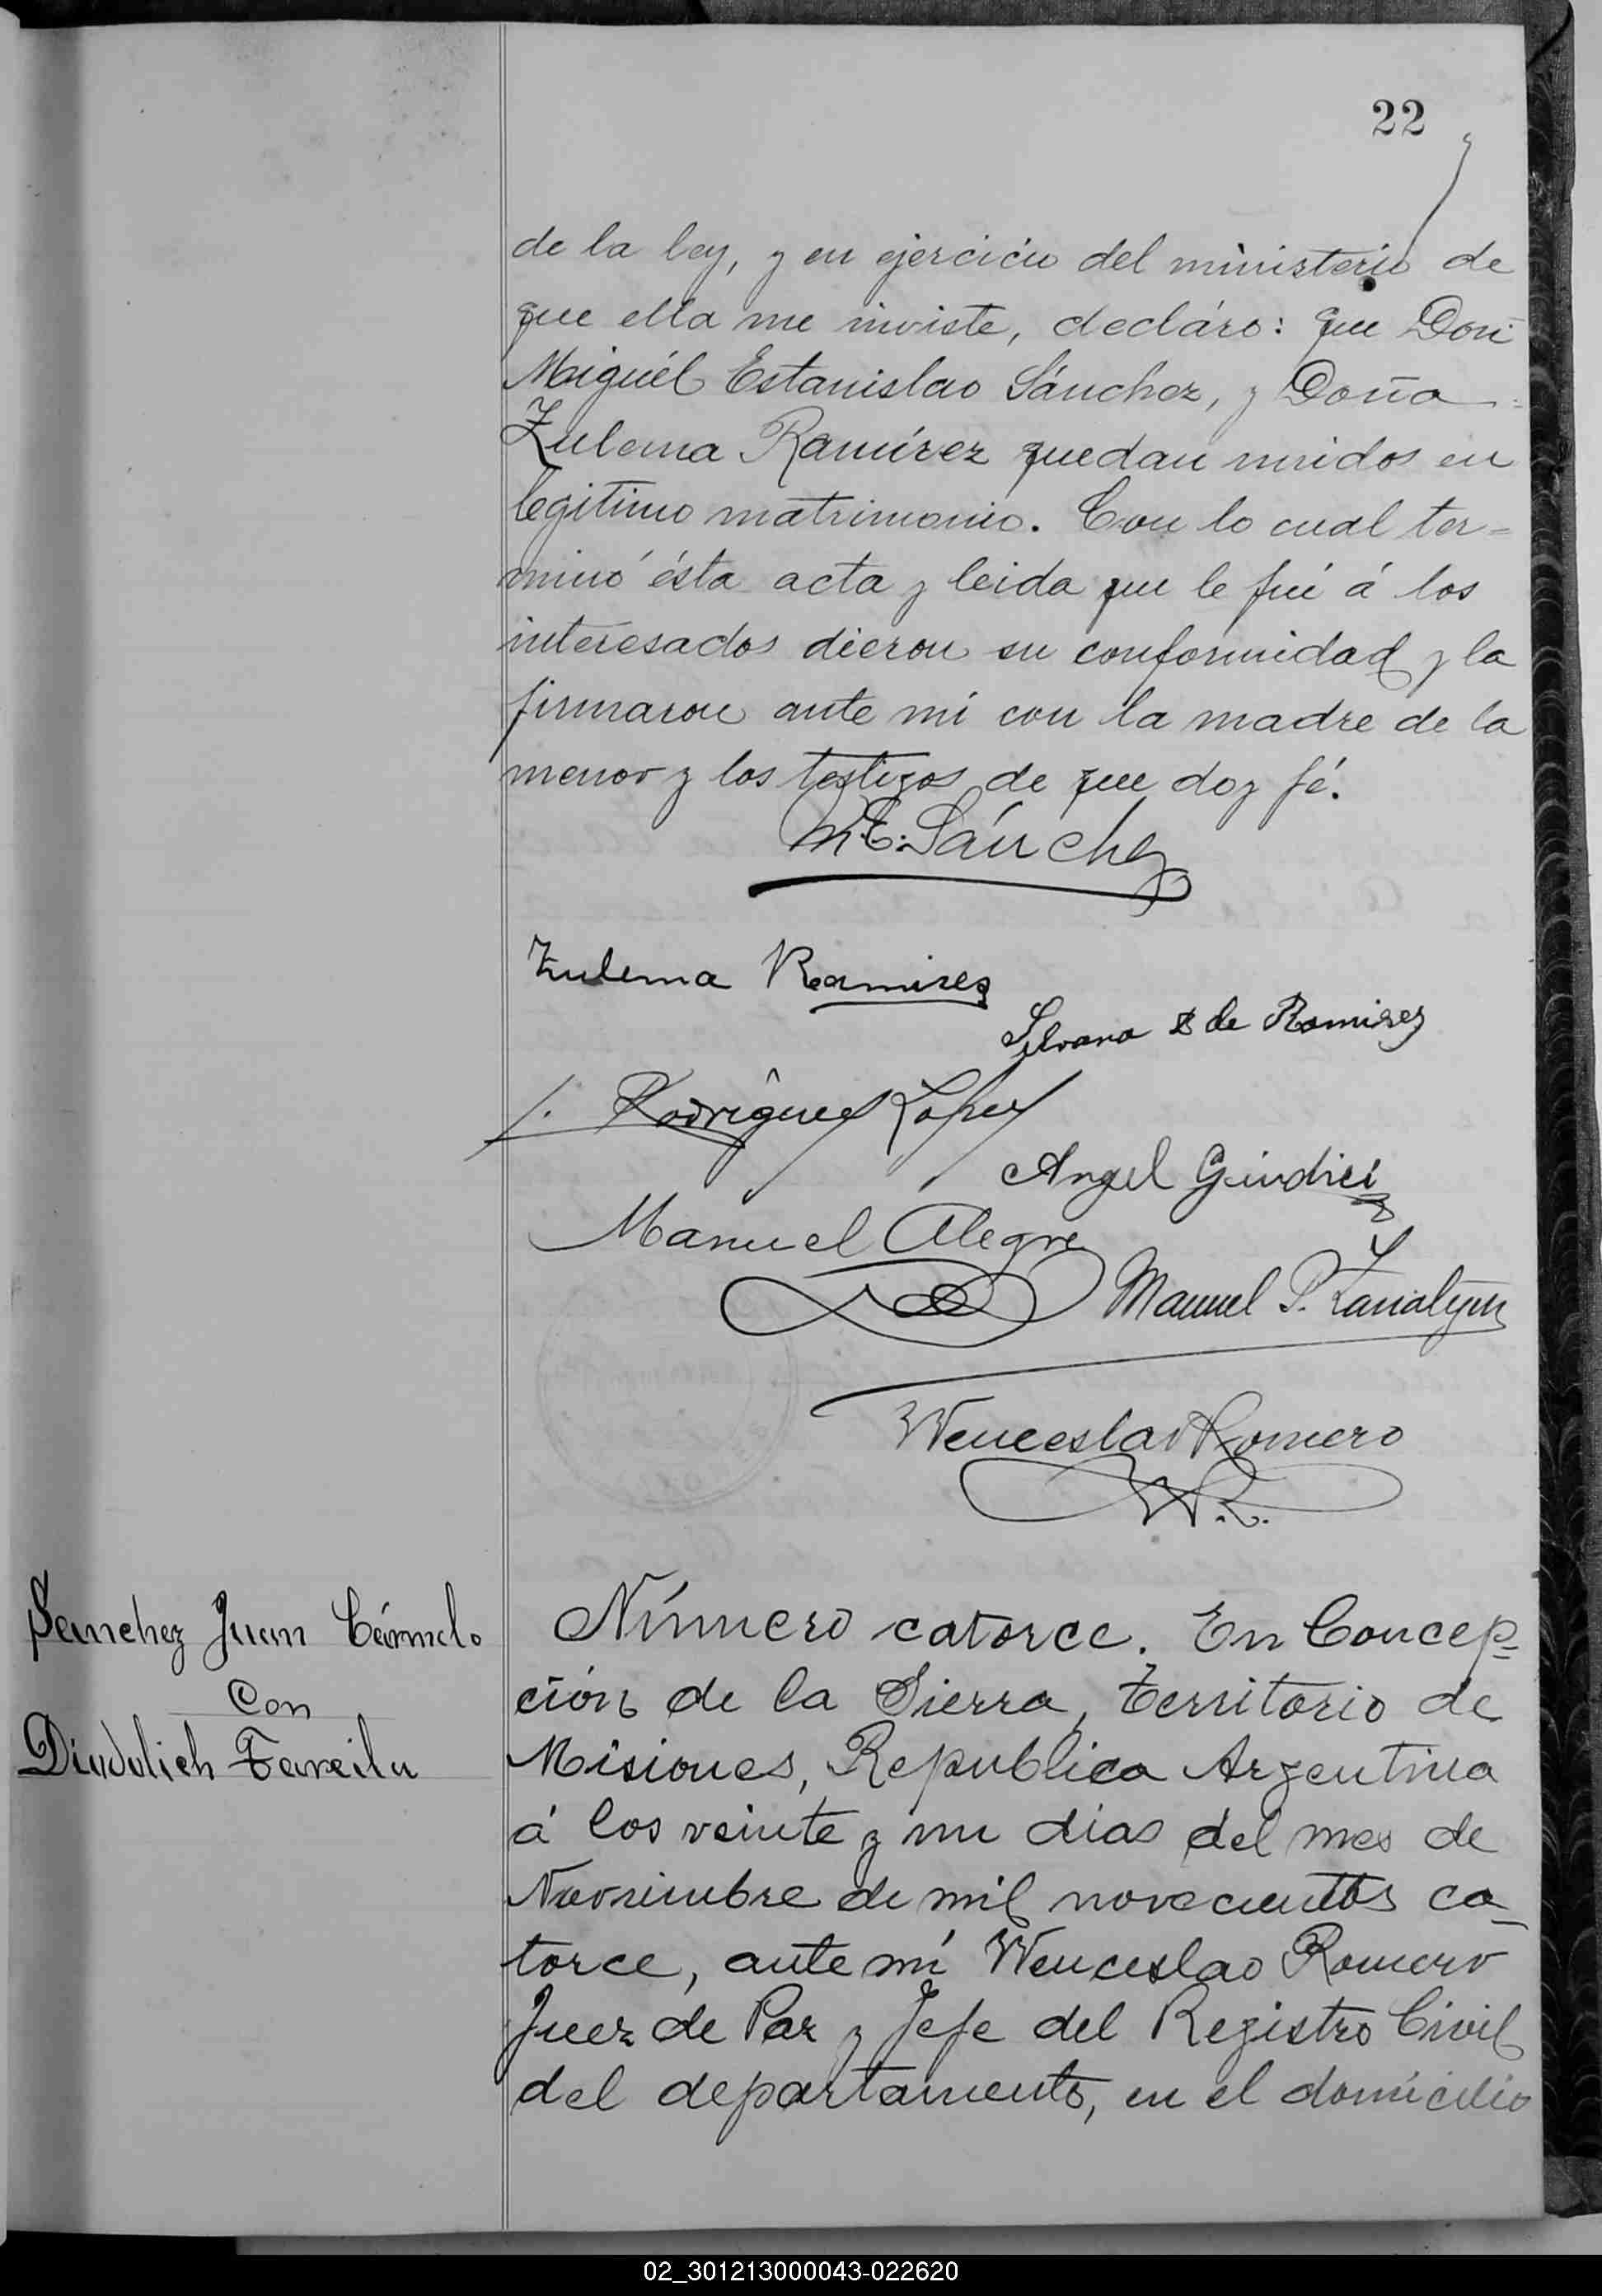 22
de la ley, y en ejercicio del ministerio de
que ella me inviste, decláro: que Don
Miguél Estanislao Sánchez, y Doña
Zulema Ramírez quedan unidos en
legitimo matrimonio. Con lo cual ter=
minó ésta acta y leida que le fué á los
interesados dieron su conformidad y la
firmaron ante mi con la madre de la
menor y los testigos de que doy fé.
M.E. Sánchez
Zulema Ramires
Silvana Z de Ramirez
Rodriguez Lopez
Angel Giudici
Manuel Alegre
Manuel P.
Wenceslao Romero
W.R.
Sanchez Juan Cármelo
Con
Número catorce. En Concep=
ción de la Sierra, territorio de
Misiones, Republica Argentina
á los veinte y un dias del mes de
Noviembre de mil novecientos ca_
torce, ante mí Wenceslao Romero
Juez de Paz y Jefe del Registro Civil
del departamento, en el domicilio
02_301213000043-022620